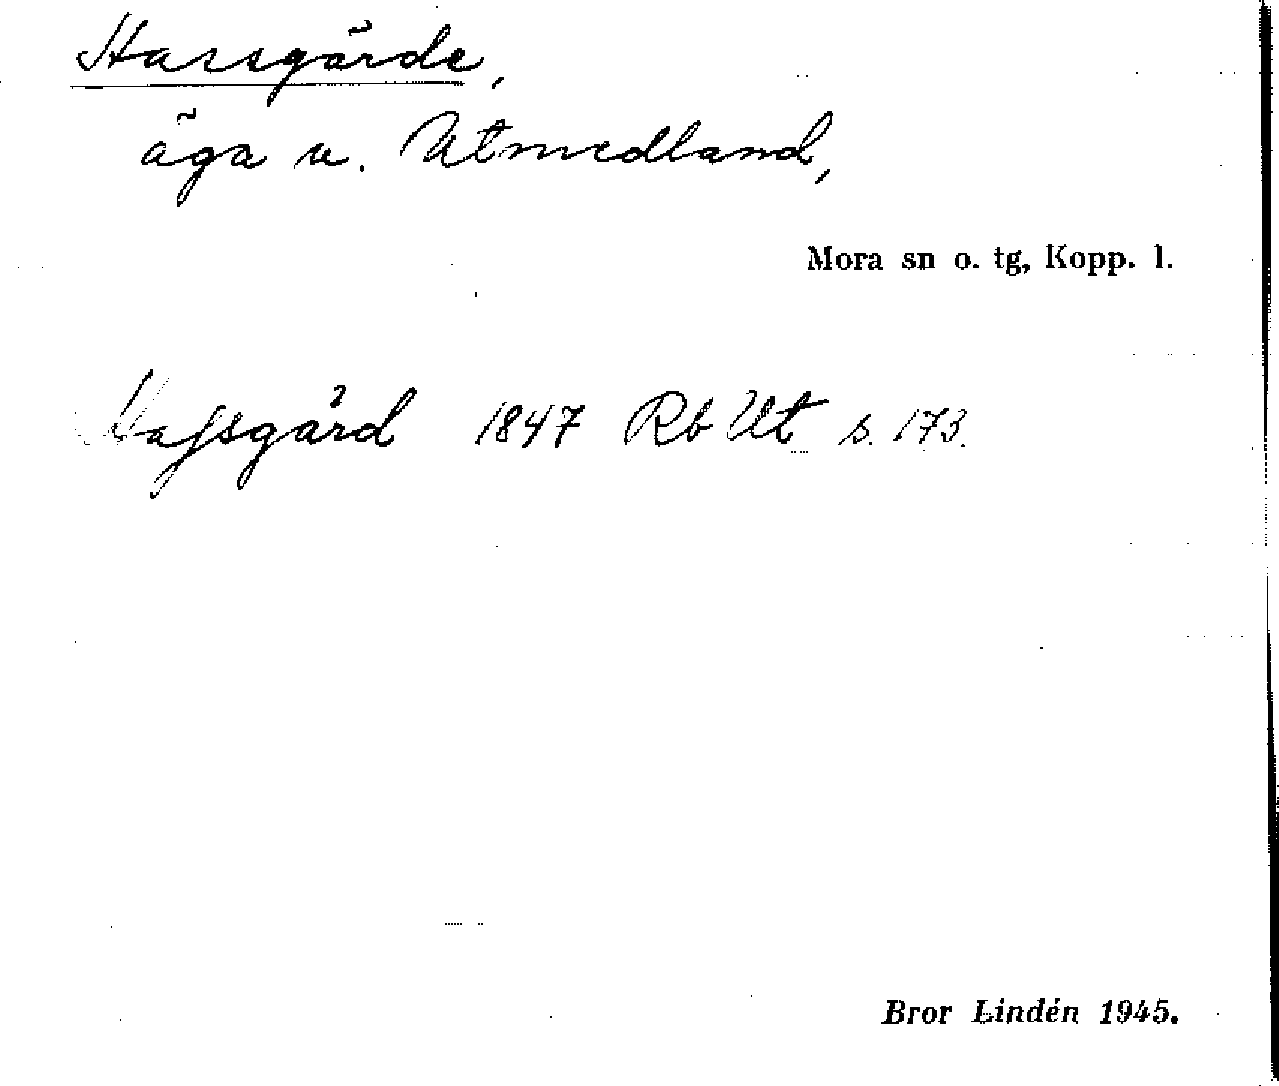 Hassgärde,
äga v. Utmedland,
Mora sn o. tg, Kopp. l.
Hassgård 1847 Rb Ut s. 173.
Bror Lindén 1945.